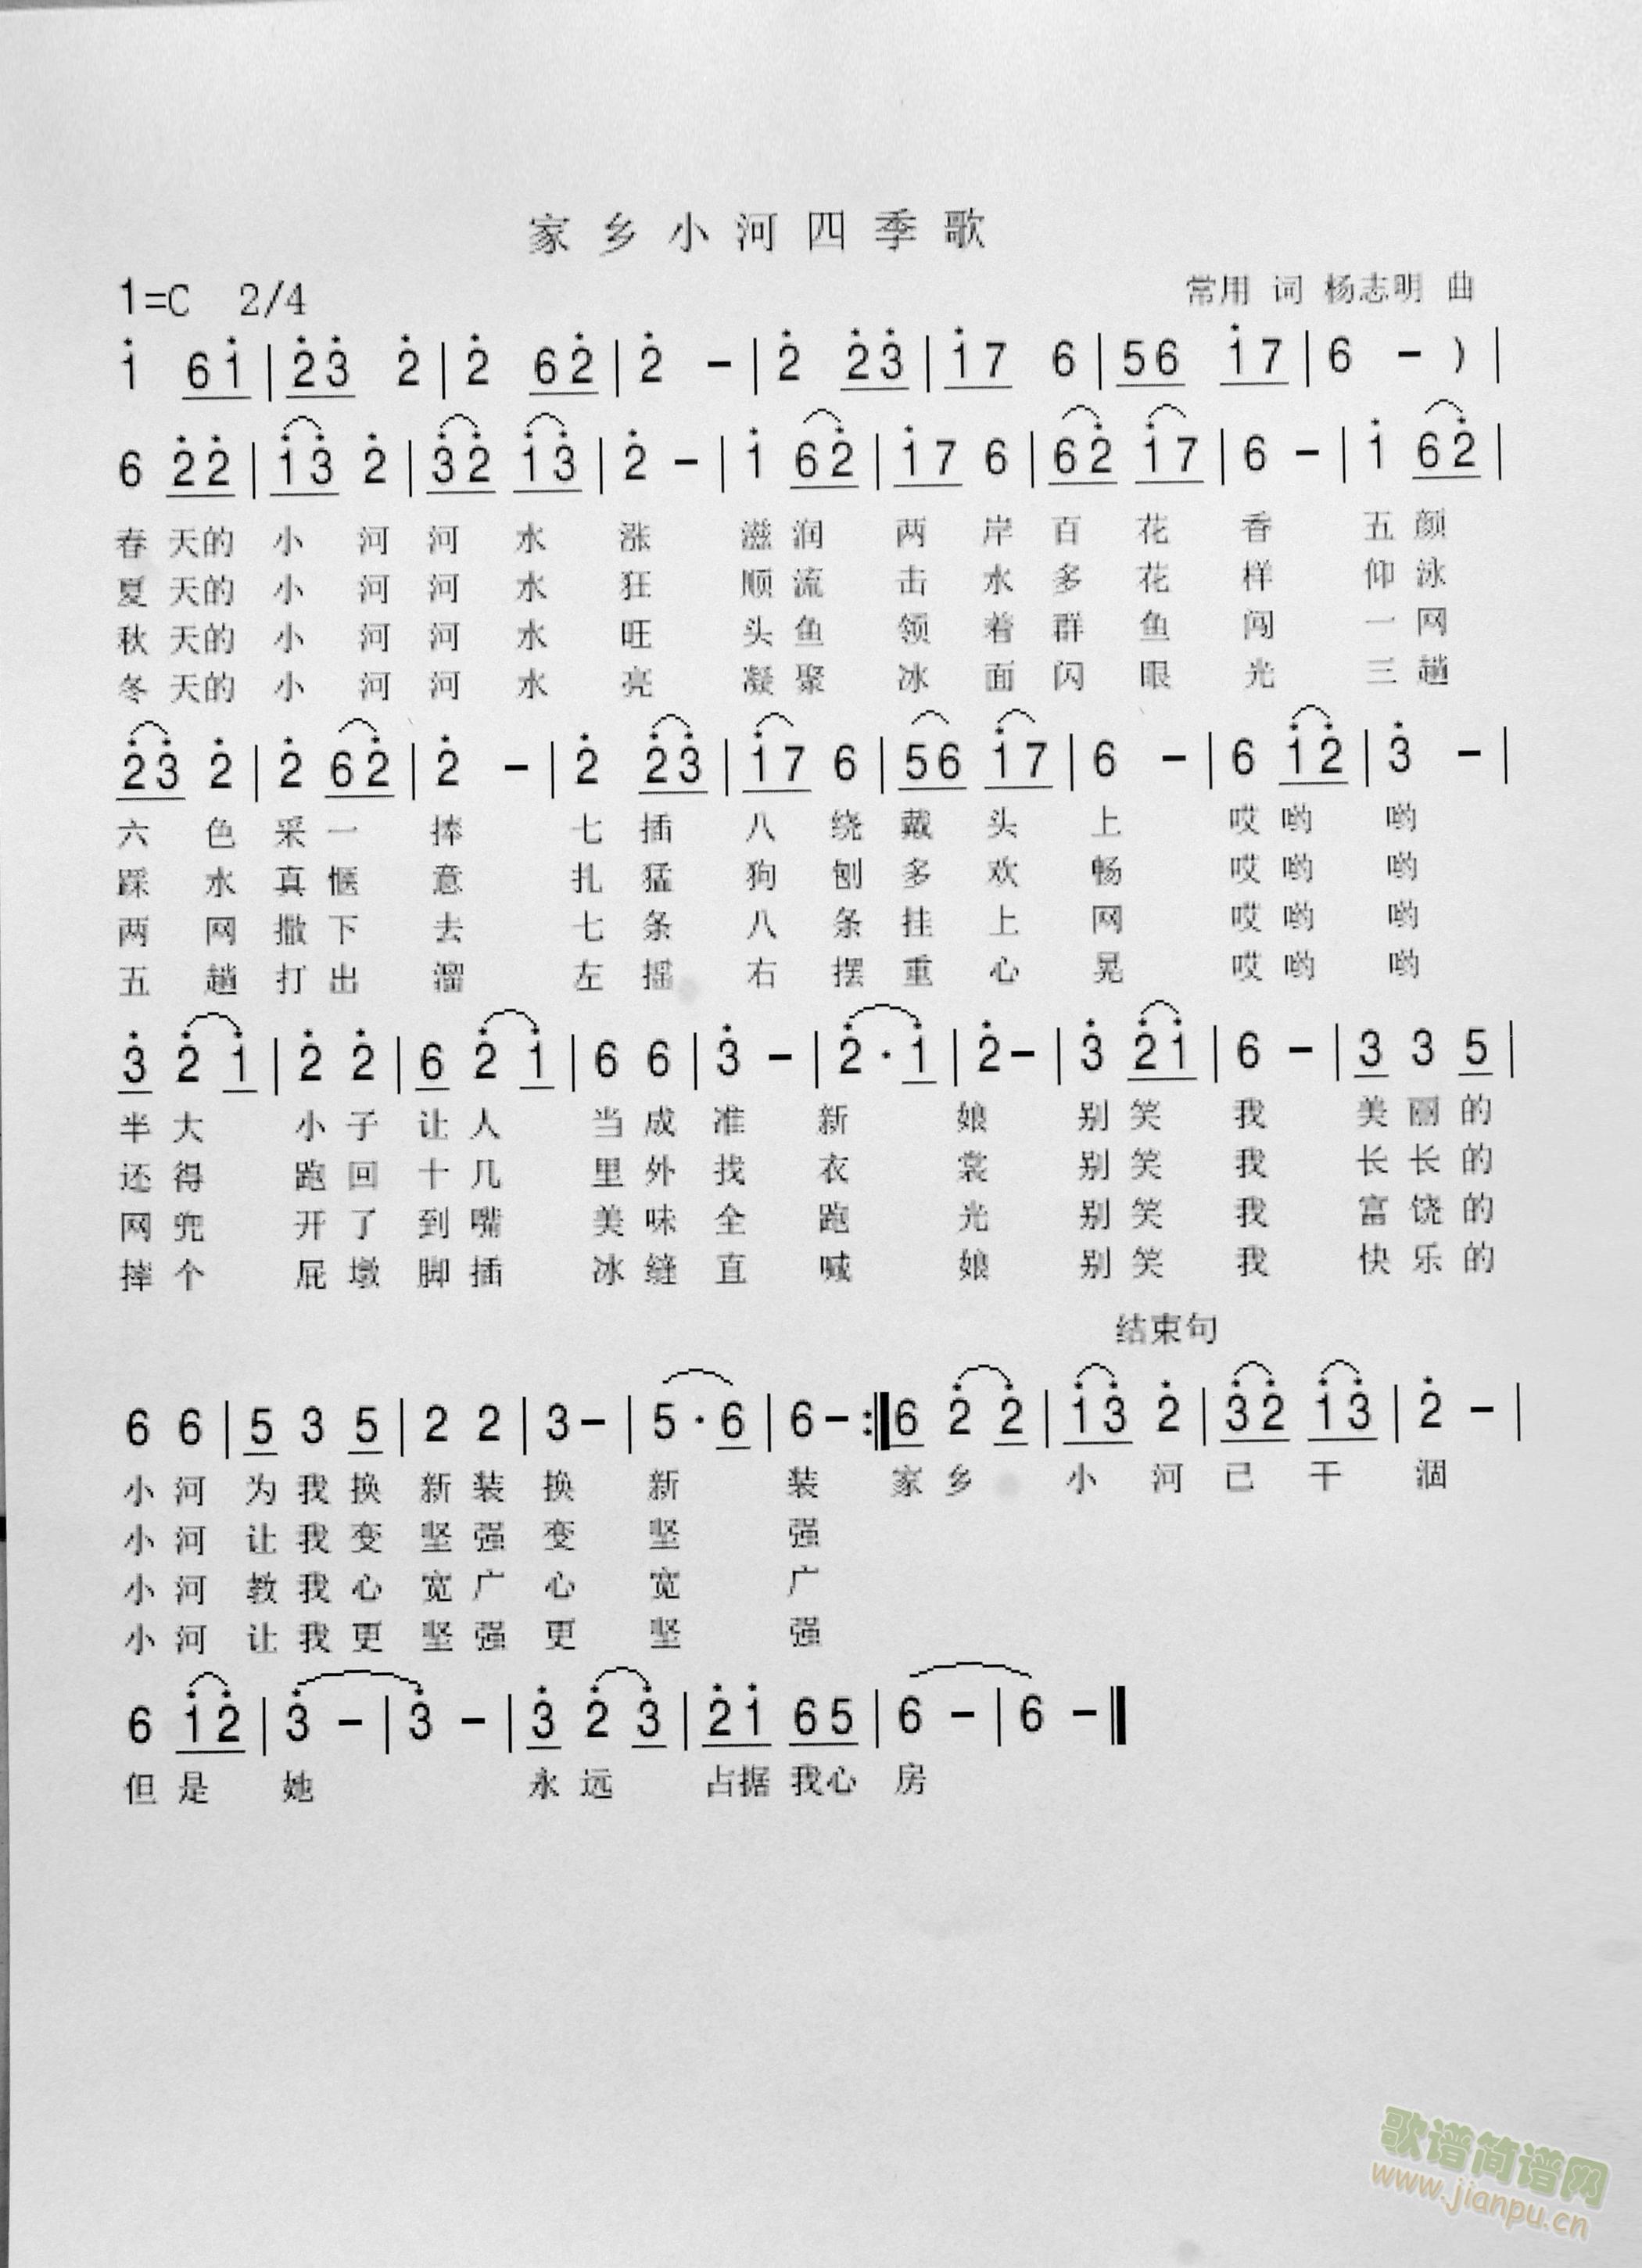 家乡小河四季歌
1=C 2/4 常用 词 杨志明 曲
1 6 1 | 2 3 2 | 2 6 2 | 2 - | 2 2 3 | 1 7 6 | 5 6 1 7 | 6 - ) |
6 2 2 | 1 3 2 | 3 2 1 3 | 2 - | 1 6 2 | 1 7 6 | 6 2 1 7 | 6 - | 1 6 2 |
春 天的 小 河 河 水 涨 滋 润 两 岸 百 花 香 五 颜
夏 天的 小 河 河 水 狂 顺 流 击 水 多 花 样 仰 泳
秋 天的 小 河 河 水 旺 头 鱼 领 着 群 鱼 闯 一 网
冬 天的 小 河 河 水 亮 凝 聚 冰 面 闪 眼 光 三 趟
2 3 2 | 2 6 2 | 2 - | 2 2 3 | 1 7 6 | 5 6 1 7 | 6 - | 6 1 2 | 3 - |
六 色 采 一 捧 七 插 八 绕 戴 头 上 哎 哟 哟
踩 水 真 惬 意 扎 猛 狗 刨 多 欢 畅 哎 哟 哟
两 网 撒 下 去 七 条 八 条 挂 上 网 哎 哟 哟
五 趟 打 出 溜 左 摇 右 摆 重 心 晃 哎 哟 哟
3 2 1 | 2 2 | 6 2 1 | 6 6 | 3 - | 2 · 1 | 2 - | 3 2 1 | 6 - | 3 3 5 |
半 大 小 子 让 人 当 成 准 新 娘 别 笑 我 美 丽 的
还 得 跑 回 十 几 里 外 找 衣 裳 别 笑 我 长 长 的
网 兜 开 了 到 嘴 美 味 全 跑 光 别 笑 我 富 饶 的
摔 个 屁 墩 脚 插 冰 缝 直 喊 娘 别 笑 我 快 乐 的
结束句
6 6 | 5 3 5 | 2 2 | 3 - | 5 · 6 | 6 - :‖ 6 2 2 | 1 3 2 | 3 2 1 3 | 2 - |
小 河 为 我 换 新 装 换 新 装 家 乡 小 河 已 干 涸
小 河 让 我 变 坚 强 变 坚 强
小 河 教 我 心 宽 广 心 宽 广
小 河 让 我 更 坚 强 更 坚 强
6 1 2 | 3 - | 3 - | 3 2 3 | 2 1 6 5 | 6 - | 6 - ‖
但 是 她 永 远 占据 我心 房
歌谱简谱网
www.jianpu.cn